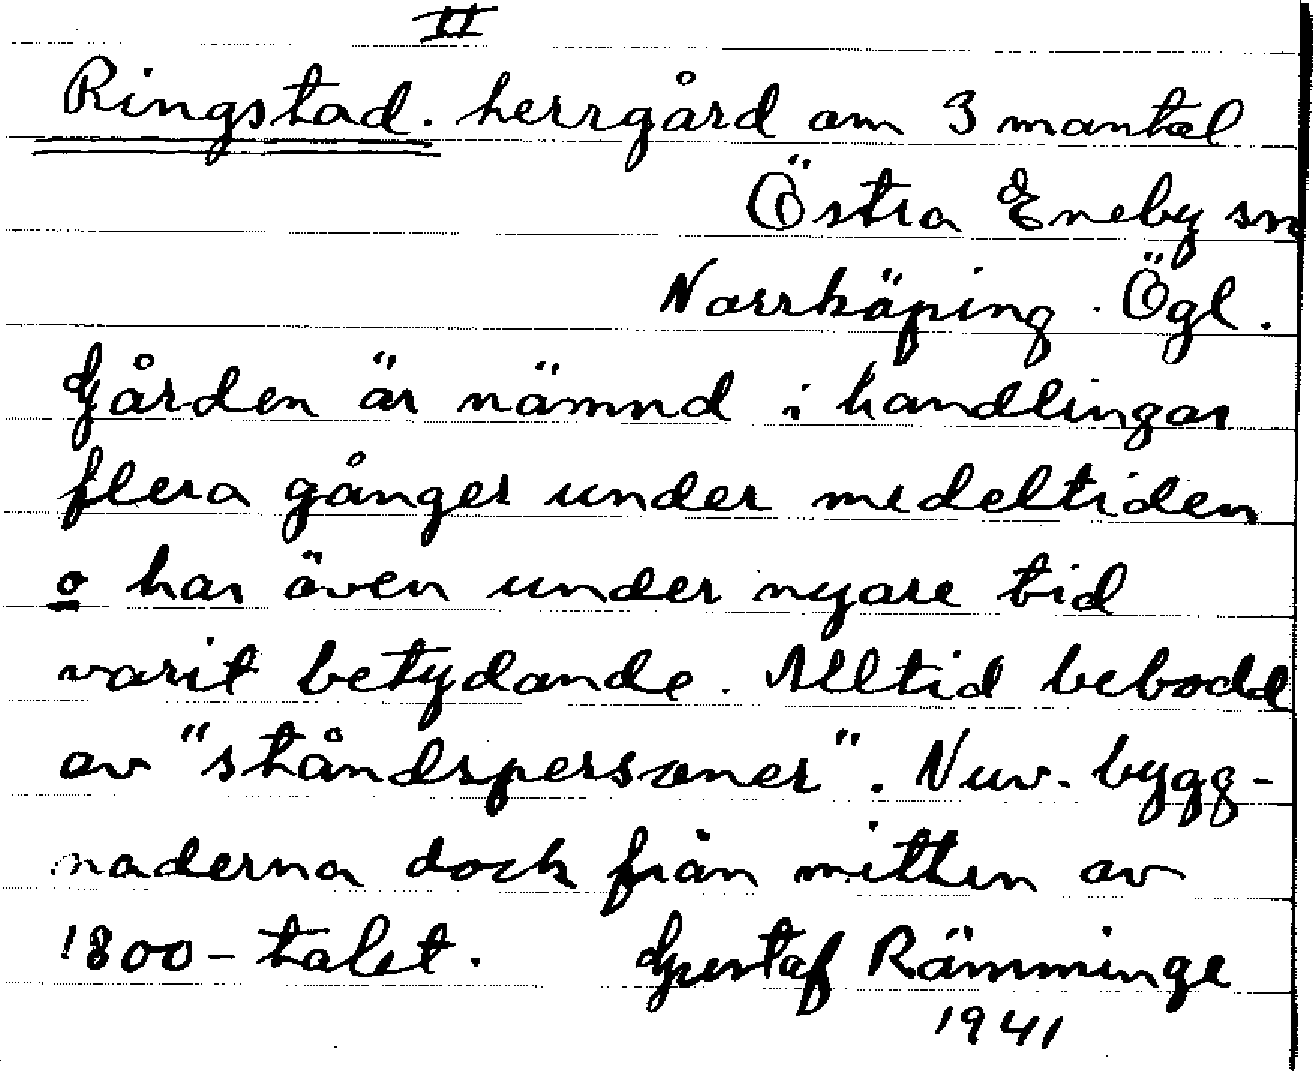 II
Ringstad. herrgård om 3 mantal
Östra Eneby sn
Norrköping. Ögl.
Gården är nämnd i handlingar
flera gånger under medeltiden
o har även under nyare tid
varit betydande. Alltid bebodd
av "ståndspersoner". Nuv. bygg-
naderna dock från mitten av
1800-talet. Gustaf Rämminge
1941